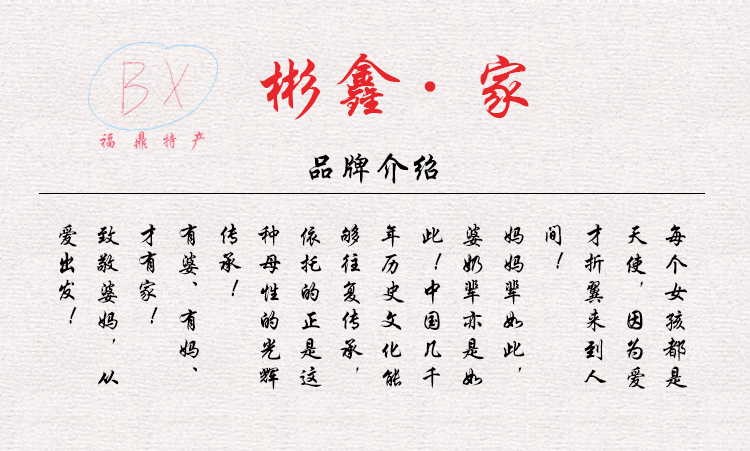 BX
福鼎特产
彬鑫·家
品牌介绍
每个女孩都是
天使，因为爱
才折翼来到人
间！
妈妈辈如此，
婆奶辈亦是如
此！中国几千
年历史文化能
够往复传承，
依托的正是这
种母性的光辉
传承！
有婆、有妈、
才有家！
致敬婆妈，从
爱出发！